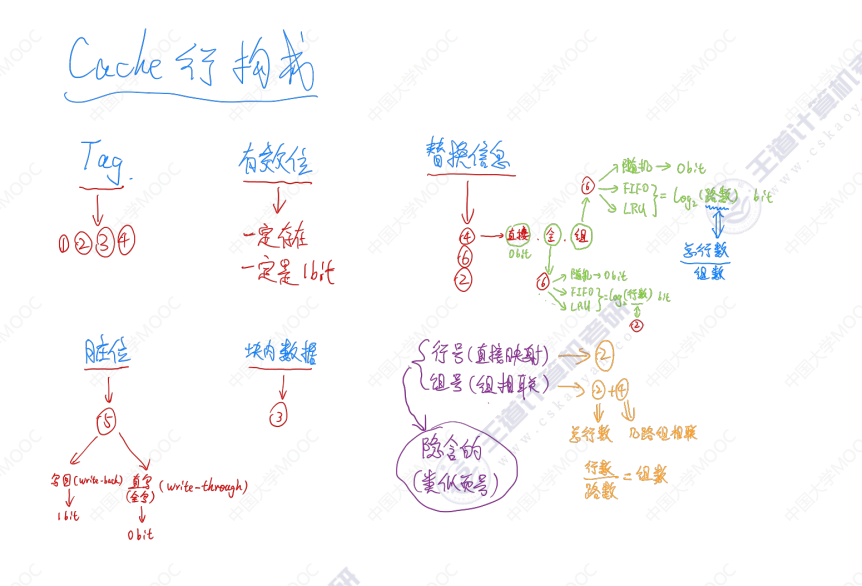 Cache 行构成
Tag
① ② ③ ④
有效位
一定存在
一定是1bit
替换信息
④ → 直接、全、组
0bit
⑥
②
⑥
随机 → 0bit
FIFO
LRU
= log₂(路数) bit
总行数
组数
⑥
随机 → 0bit
FIFO
LRU
= log₂(行数) bit
②
脏位
⑤
写回(write-back)
1bit
直写
(全写)
(write-through)
0bit
块内数据
③
行号(直接映射) → ②
组号(组相联) → ②+④
总行数 几路组相联
行数
路数
= 组数
隐含的
(类似页号)
中国大学MOOC
王道计算机考研
www.cskaoyan.com